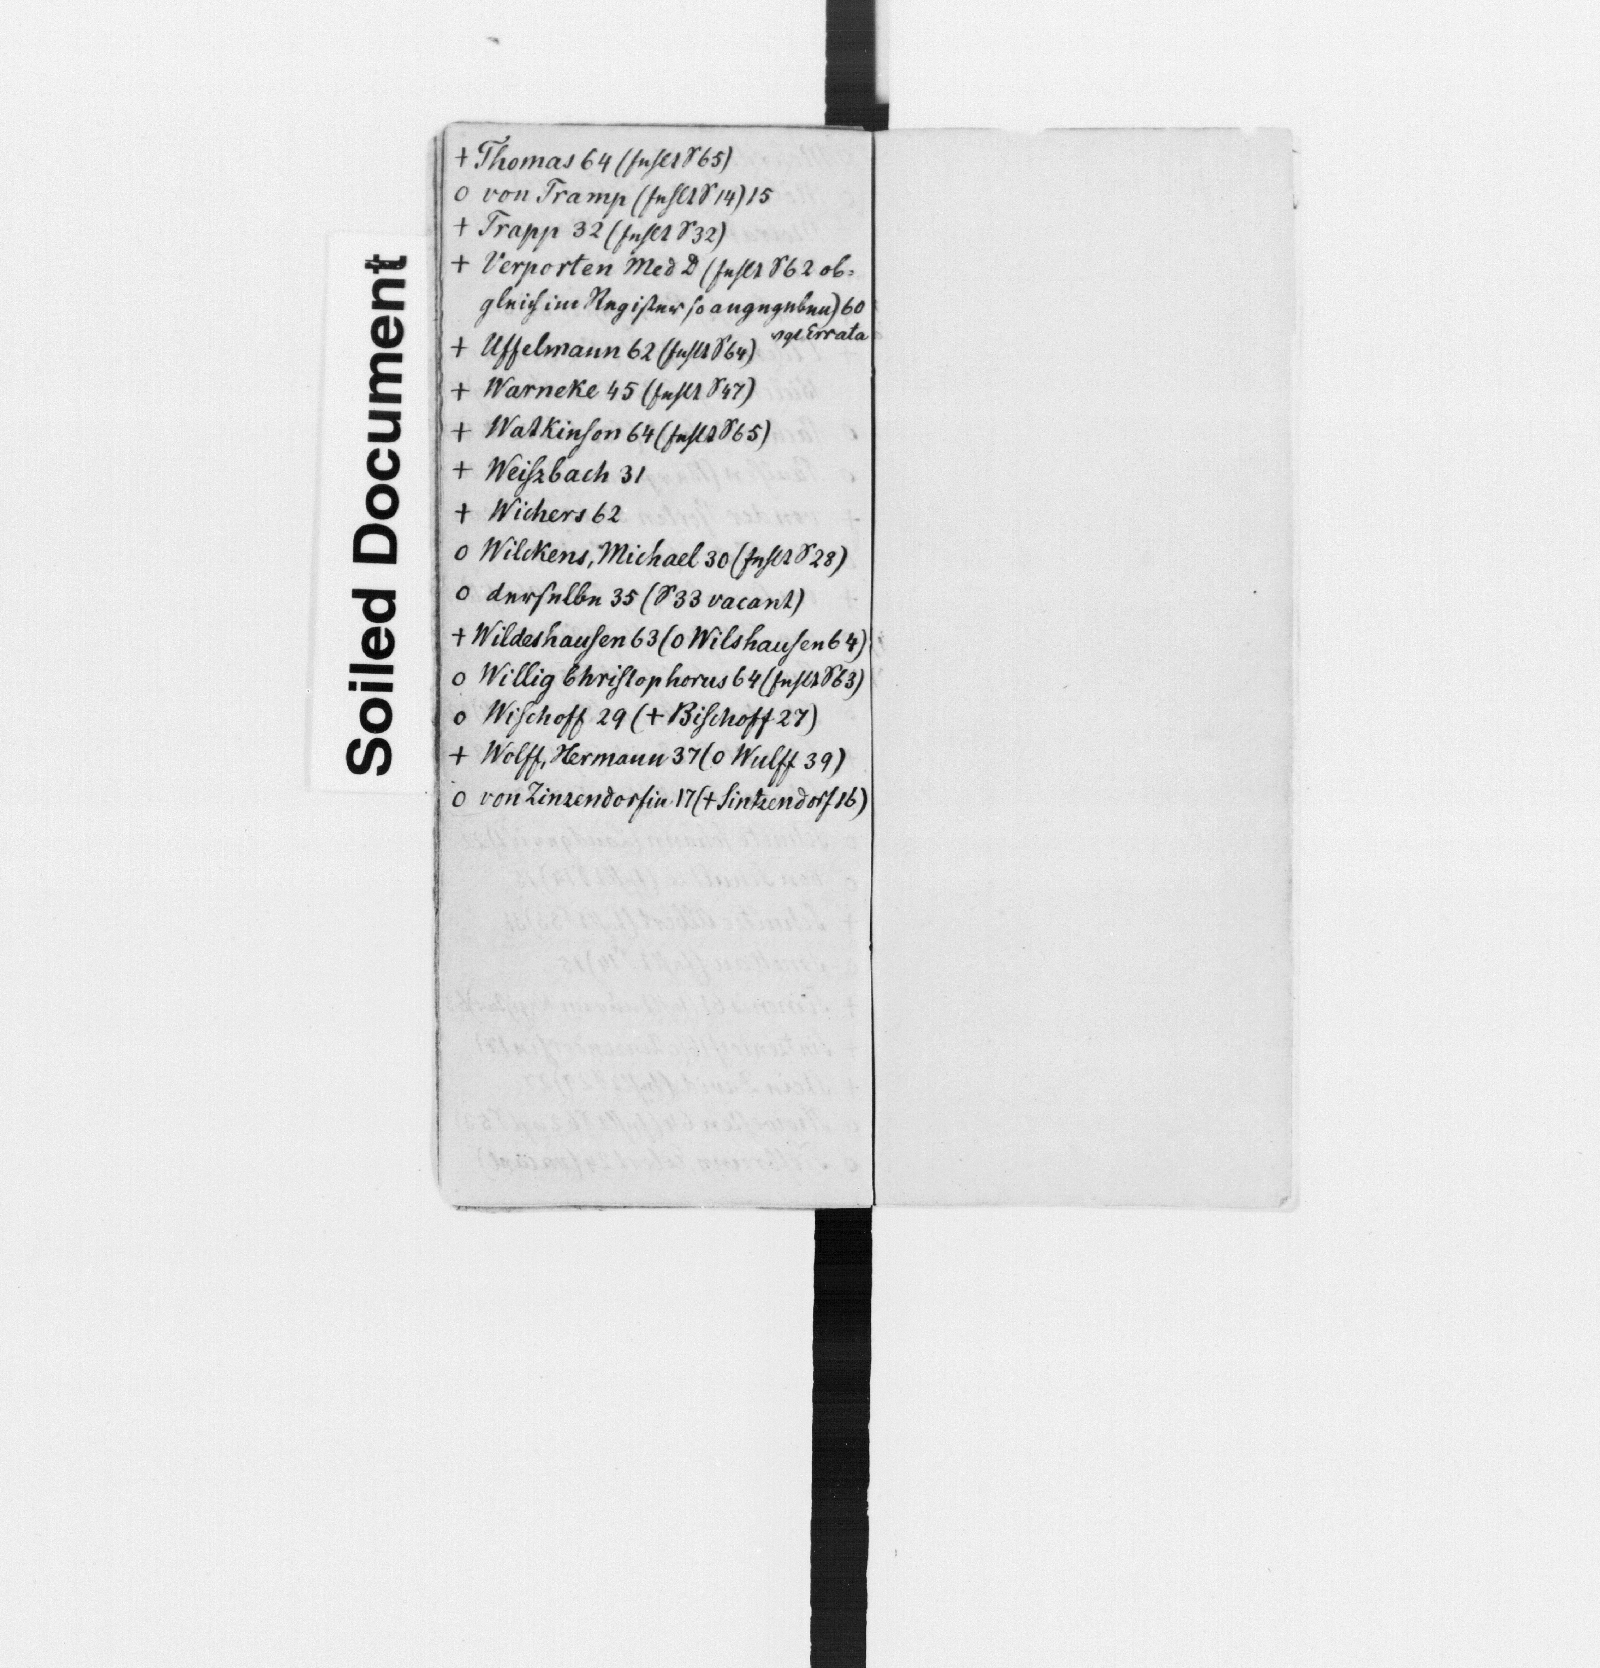 + Thomas 64 (fehlt S 65)
o von Tramp (fehlt S 14) 15
+ Trapp 32 (fehlt S 32)
+ Verporten Med D (fehlt S 62 ob=
gleich im Register so angegeben) 60
vgl Errata
+ Uffelmann 62 (fehlt S 64)
+ Warneke 45 (fehlt S 47)
+ Watkinson 64 (fehlt S 65)
+ Weiszbach 31
+ Wichers 62
o Wilckens, Michael 30 (fehlt S 28)
o derselbe 35 (S 33 vacant)
+ Wildeshausen 63 (o Wilshausen 64)
o Willig Christophorus 64 (fehlt S 63)
o Wischoff 29 (+ Bischoff 27)
+ Wolff, Hermann 37 (o Wulff 39)
o von Zinzendorfin 17 (+ Sintzendorf 16)
Soiled Document